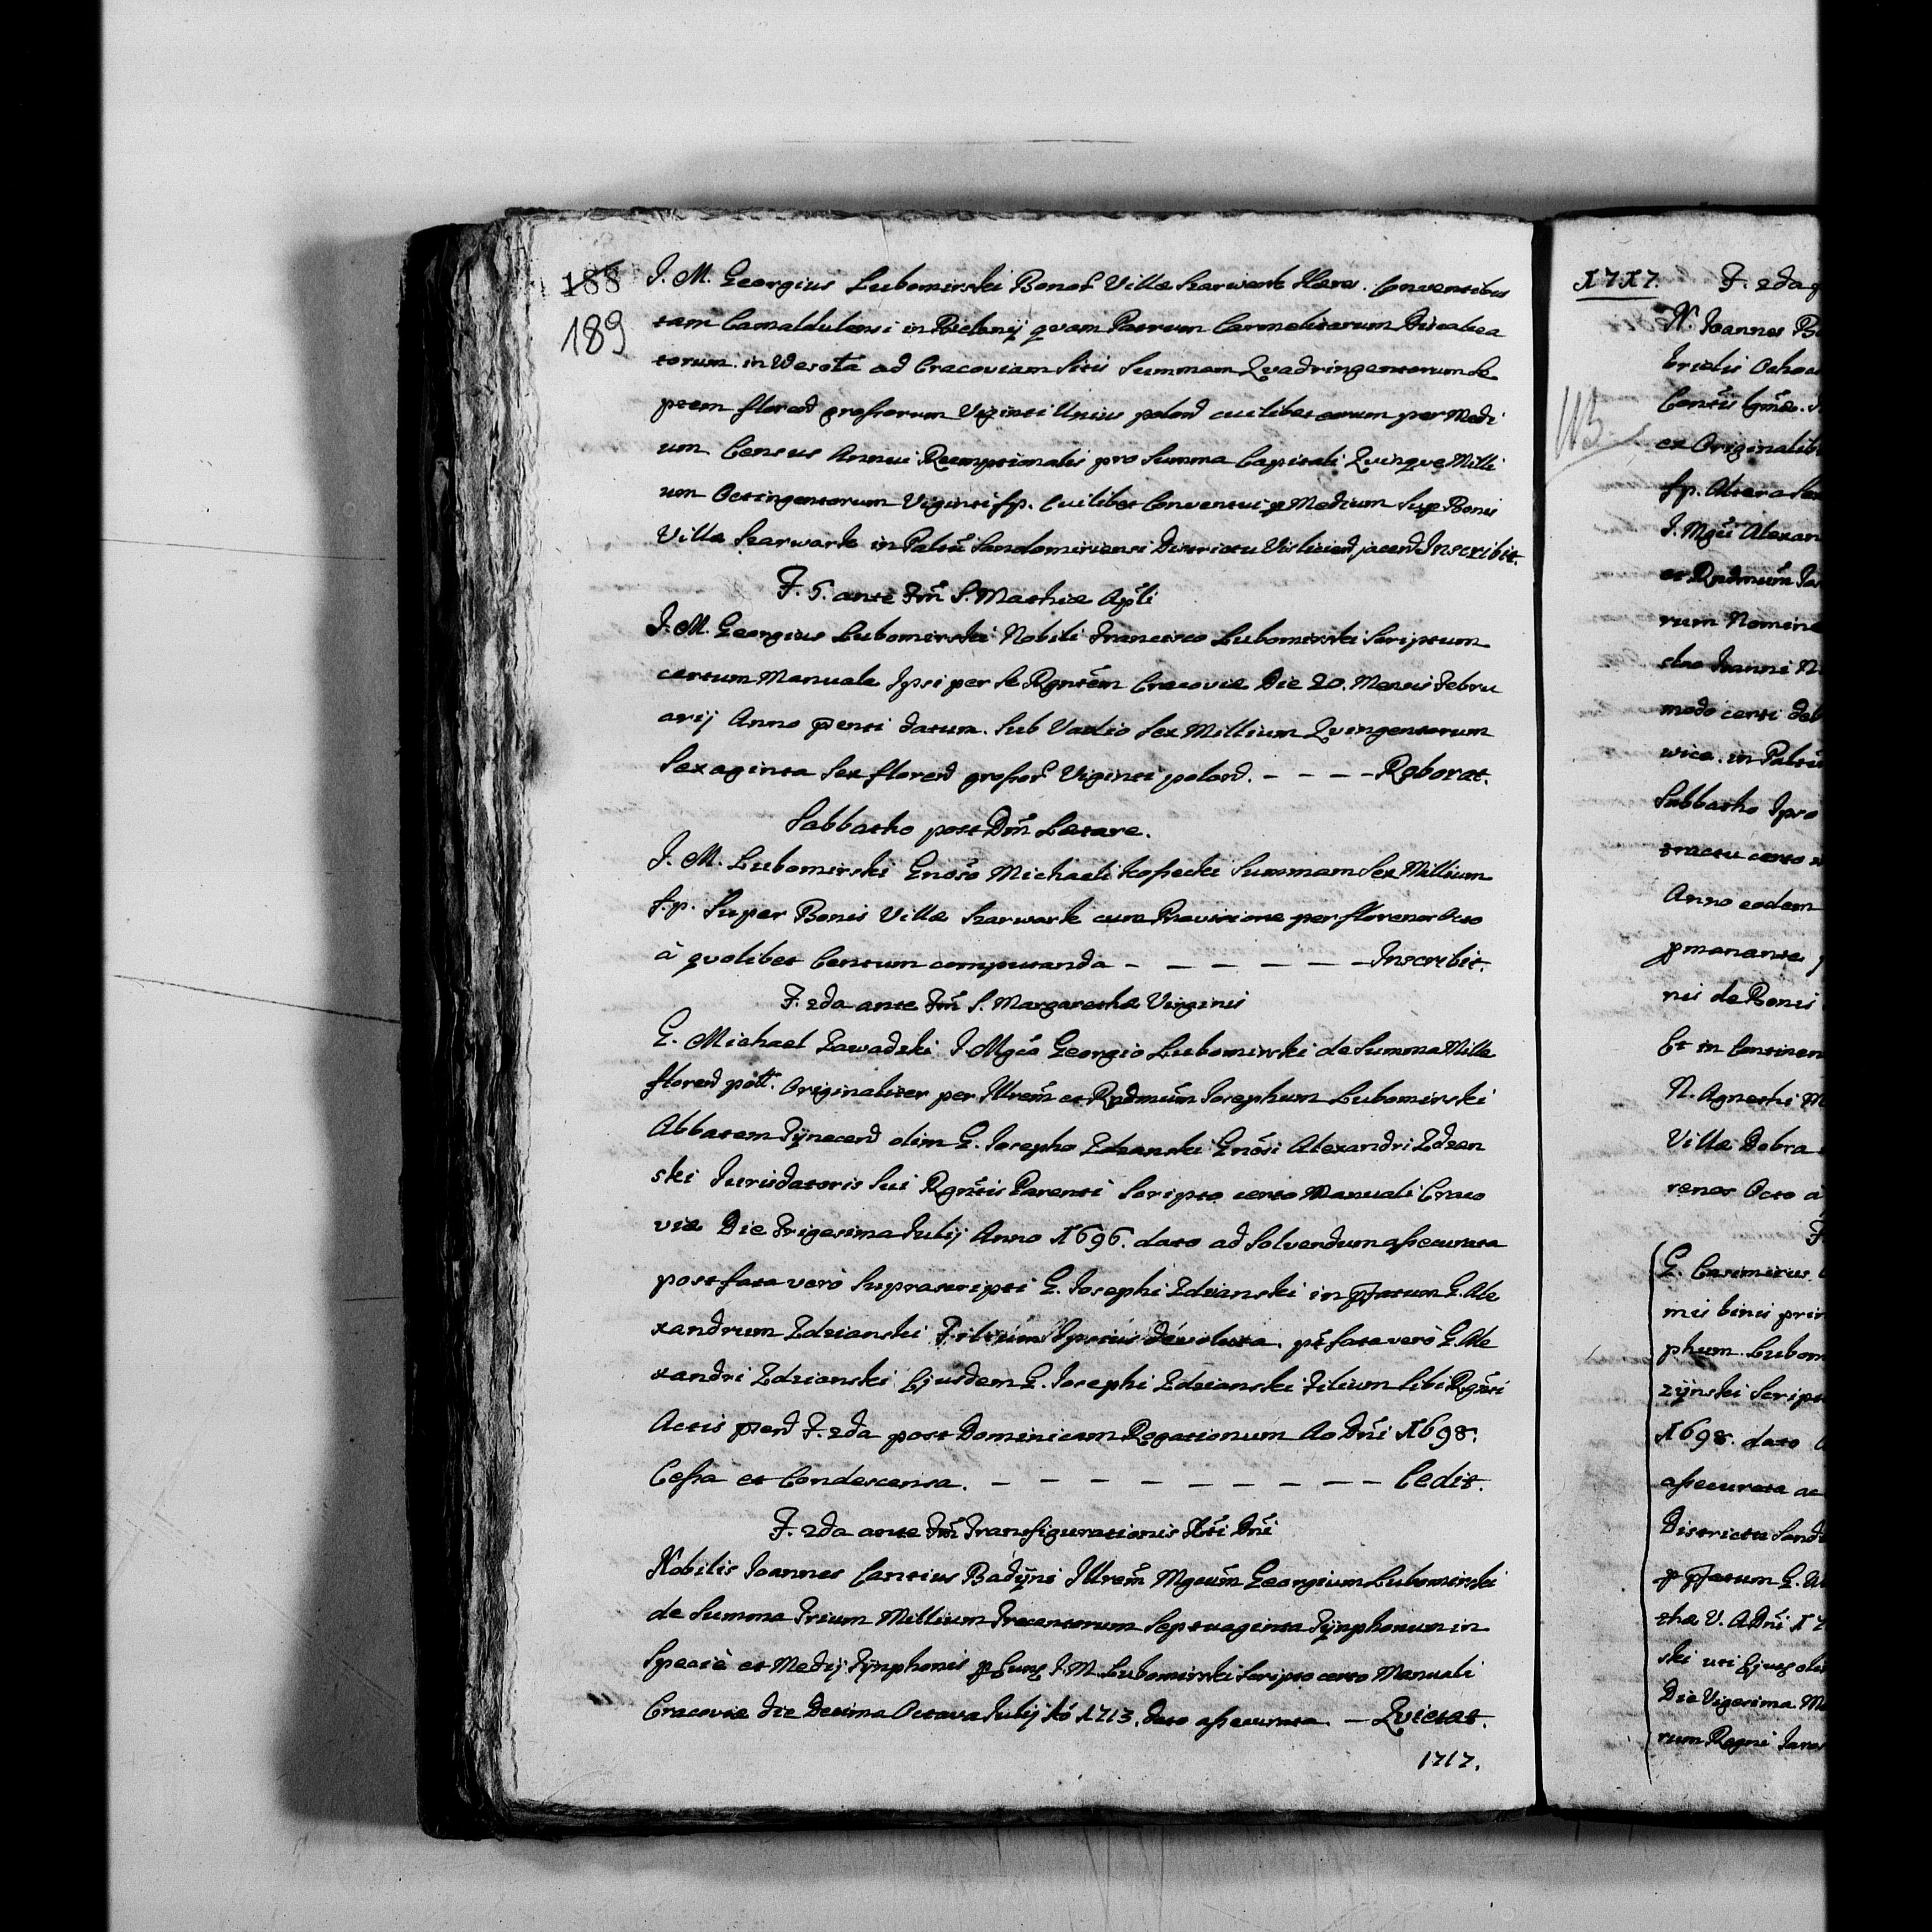 188
189
J. M. Georgius Lubomirski Bonor Villæ Szarwark Hæres. Conventibus
tam Camaldulensi in Bielanij qvam Patrum Carmelitarum Discalcea
torum in Wesoła ad Cracoviam Sitis Summam Qvadringentorum Se
ptem floren̄ grossorum Viginti Unius polon̄ cuilibet eorum per Medi
um Census Annui Reemptionalis pro Summa Capitali Qvinqve Milli
um Octingentorum Viginti fp. Cuilibet Conventui p Medium Sup Bonis
Villa Szarwark in Paltū Sandomiriensi Districtu Vislicien̄ jacen̄ Inscribit.
F. 5. ante Fm̄ S. Mathiæ Apl̄i
J. M. Georgius Lubomirski Nobili Francisco Lubomirski Scriptum
certum Manuale Ipsi per Se Rgntēm Cracoviæ Die 20. Mensis Febru
arij Anno p̄enti datum. Sub Vadio Sex Millium Qvingentorum
Sexaginta Sex floren̄ grossor̄ Viginti polon̄. - - - - Roborat.
Sabbatho post Dm̄ Lætare.
J. M. Lubomirski Gnōso Michaeli Kossecki Summam Sex Millium
f.p. Super Bonis Villæ Szarwark cum Provisione per florenos Octo
à qvolibet Centum computanda - - - - - - Inscribit.
F. 2da ante Fm̄ S. Margarethæ Virginis
G. Michael Zawadzki J. Mgcō Georgio Lubomirski de Summa Mille
floren̄ poll. Originaliter per Illrēm et Rndmūm Josephum Lubomirski
Abbatem Tÿnecen̄ olim G. Josepho Zdzanski Gnōsi Alexandri Zdzan
ski Jurisdatoris Sui Rgntīs Parenti Scripto certo Manuali Craco
viæ Die Trigesima Julij Anno 1696. dato ad Solvendum assecurata
post fata verò Suprascripti G. Josephi Zdzianski in p̄fatum G. Ale
xandrum Zdzianski Filium Ipsius devoluta. pt̄ fata verò G. Ale
xandri Zdzianski Ejusdem G. Josephi Zdzianski Filium Sibi Rgntī
Actis p̄en̄ F. 2da post Dominicam Rogationum Ao Dn̄i 1698.
Cessa et Condescensa. - - - - - - - - Cedit.
F. 2da ante Fm̄ Transfigurationis Xti Dn̄i
Nobilis Joannes Cantius Badÿni Illrēm Mgcūm Georgium Lubomirski
de Summa Trium Millium Trecentorum Septuaginta Tÿnphonum in
Specie et Medij Tÿnphonis p Eunq J. M. Lubomirski Scripto certo Manuali
Cracoviæ die Decima Octava Julij Aō 1713. dato assecurata. - Qvietat.
1717.
1717. F. 2da
N. Joannes
brielis
ex
fp. Altera
J. Mgcī Alexan
et Rndmūm
rum Nomine
Joanni
modo certi
wice. in Paltū
Sabbatho Ipso
tractu certo
Anno eodem
pmanante
nis de Bonis
Et in Continen
N. Agnethi
Villæ Dobra
renos Octo à
F.
G. Casimirus
mis binis
phum Lubom
zÿnski Script
1698. dato
assecurata ac
Districtu Sand
p p̄fatum G.
thæ V. ADn̄i
ski uti Ejusq
Die Vigesima
rum Regni